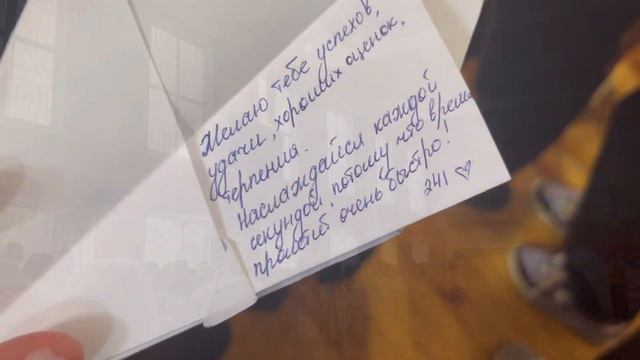 Желаю тебе успехов,
удачи, хороших оценок,
терпения.
Наслаждайся каждой
секундой, потому что время
пролетит очень быстро!
241 ♡